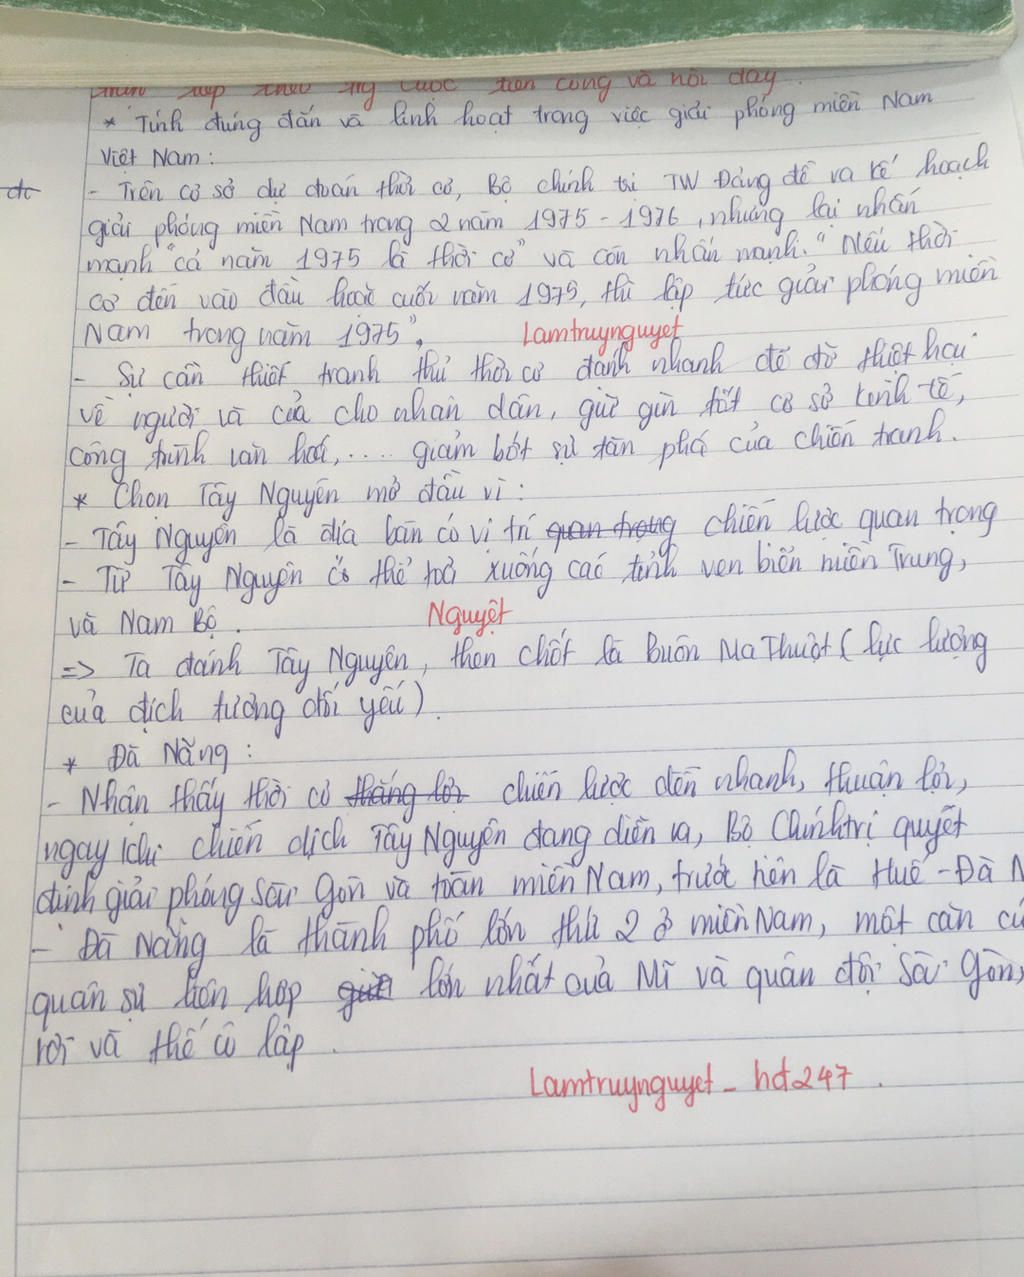 tiến công và nổi dậy.
* Tính đúng đắn và linh hoạt trong việc giải phóng miền Nam
Việt Nam:
- Trên cơ sở dự đoán thời cơ, Bộ chính trị TW Đảng đề ra kế hoạch
giải phóng miền Nam trong 2 năm 1975 - 1976, nhưng lại nhấn
mạnh "cả năm 1975 là thời cơ" và còn nhấn mạnh. "Nếu thời
cơ đến vào đầu hoặc cuối năm 1975, thì lập tức giải phóng miền
Nam trong năm 1975".
Lamtruynguyet
- Sự cần thiết tranh thủ thời cơ đánh nhanh để đỡ thiệt hại
về người và của cho nhân dân, giữ gìn tốt cơ sở kinh tế,
công trình văn hoá,.... giảm bớt sự tàn phá của chiến tranh.
* Chọn Tây Nguyên mở đầu vì:
- Tây Nguyên là địa bàn có vị trí quan trọng chiến lược quan trọng
- Từ Tây Nguyên có thể toả xuống các tỉnh ven biển miền Trung,
và Nam Bộ.
Nguyệt
=> Ta đánh Tây Nguyên, then chốt là Buôn Ma Thuột ( lực lượng
của địch tương đối yếu).
* Đà Nẵng:
- Nhận thấy thời cơ thắng lợi chiến lược đến nhanh, thuận lợi,
ngay khi chiến dịch Tây Nguyên đang diễn ra, Bộ Chính trị quyết
định giải phóng Sài Gòn và toàn miền Nam, trước tiên là Huế - Đà N
- Đà Nẵng là thành phố lớn thứ 2 ở miền Nam, một căn cứ
quân sự liên hợp lớn nhất của Mĩ và quân đội Sài Gòn,
rơi và thế cô lập.
Lamtruynguyet - hd247.